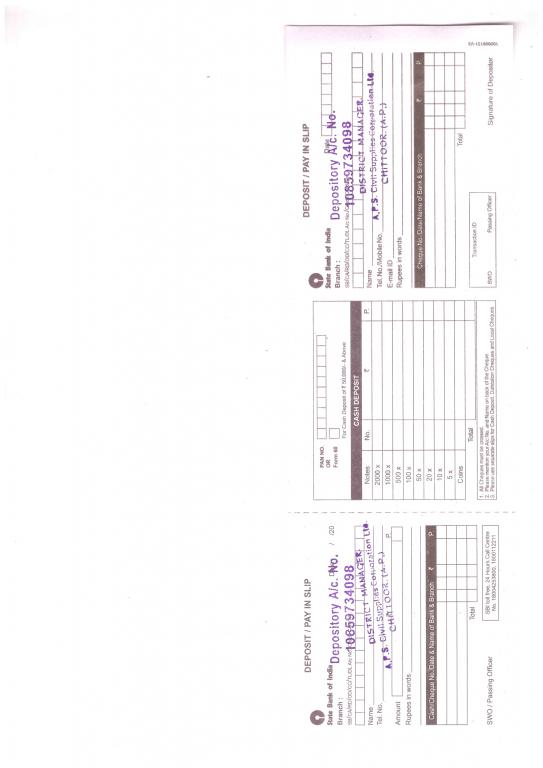 DEPOSIT / PAY IN SLIP
State Bank of India
Branch :
/ /20
Depository A/c. No.
10859734098
Name
DISTRICT MANAGER,
Tel. No.
A.P.S. Civil Supplies Corporation Ltd.
CHITTOOR (A.P.)
Amount
Rupees in words
Cash/Cheque No./Date & Name of Bank & Branch ₹ P.
Total
SWO / Passing Officer
SBI toll free, 24 Hours Call Centre
No. 18004253800, 1800112211
PAN NO.
OR
Form 60
For Cash Deposit of ₹ 50,000/- & Above
CASH DEPOSIT
Notes No. ₹ P.
2000 x
1000 x
500 x
100 x
50 x
20 x
10 x
5 x
Coins
Total
1. All Cheques must be crossed.
2. Please mention your A/c. No. and Name on back of the Cheque
3. Please use separate slips for Cash Deposit, Outstation Cheques and Local Cheques
DEPOSIT / PAY IN SLIP
State Bank of India
Branch :
Date
Depository A/c. No.
10859734098
Name
DISTRICT MANAGER,
Tel. No./Mobile No.
A.P.S. Civil Supplies Corporation Ltd.
E-mail ID
CHITTOOR (A.P.)
Rupees in words
Cheque No. Date/Name of Bank & Branch ₹ P.
Total
Transaction ID
SWO Passing Officer
Signature of Depositor